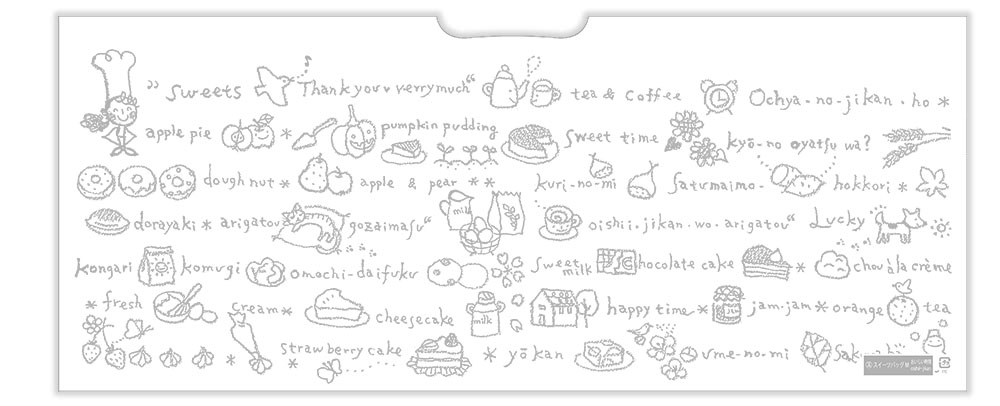 " Sweets Thank you ♥ verry much " tea & coffee Ochya-no-jikan.ho *
apple pie * pumpkin pudding Sweet time kyō-no oyatsu wa?
doughnut * apple & pear ** kuri-no-mi Satumaimo- hokkori *
dorayaki * arigatou gozaimasu" milk oishii.jikan.wo.arigatou" Lucky
kongari komugi omochi-daifuku Sweet milk chocolate cake * chou à la crème
* fresh cream * cheesecake milk happy time * jam.jam * orange tea
* strawberry cake * yōkan ume-no-mi
スイーツバッグ